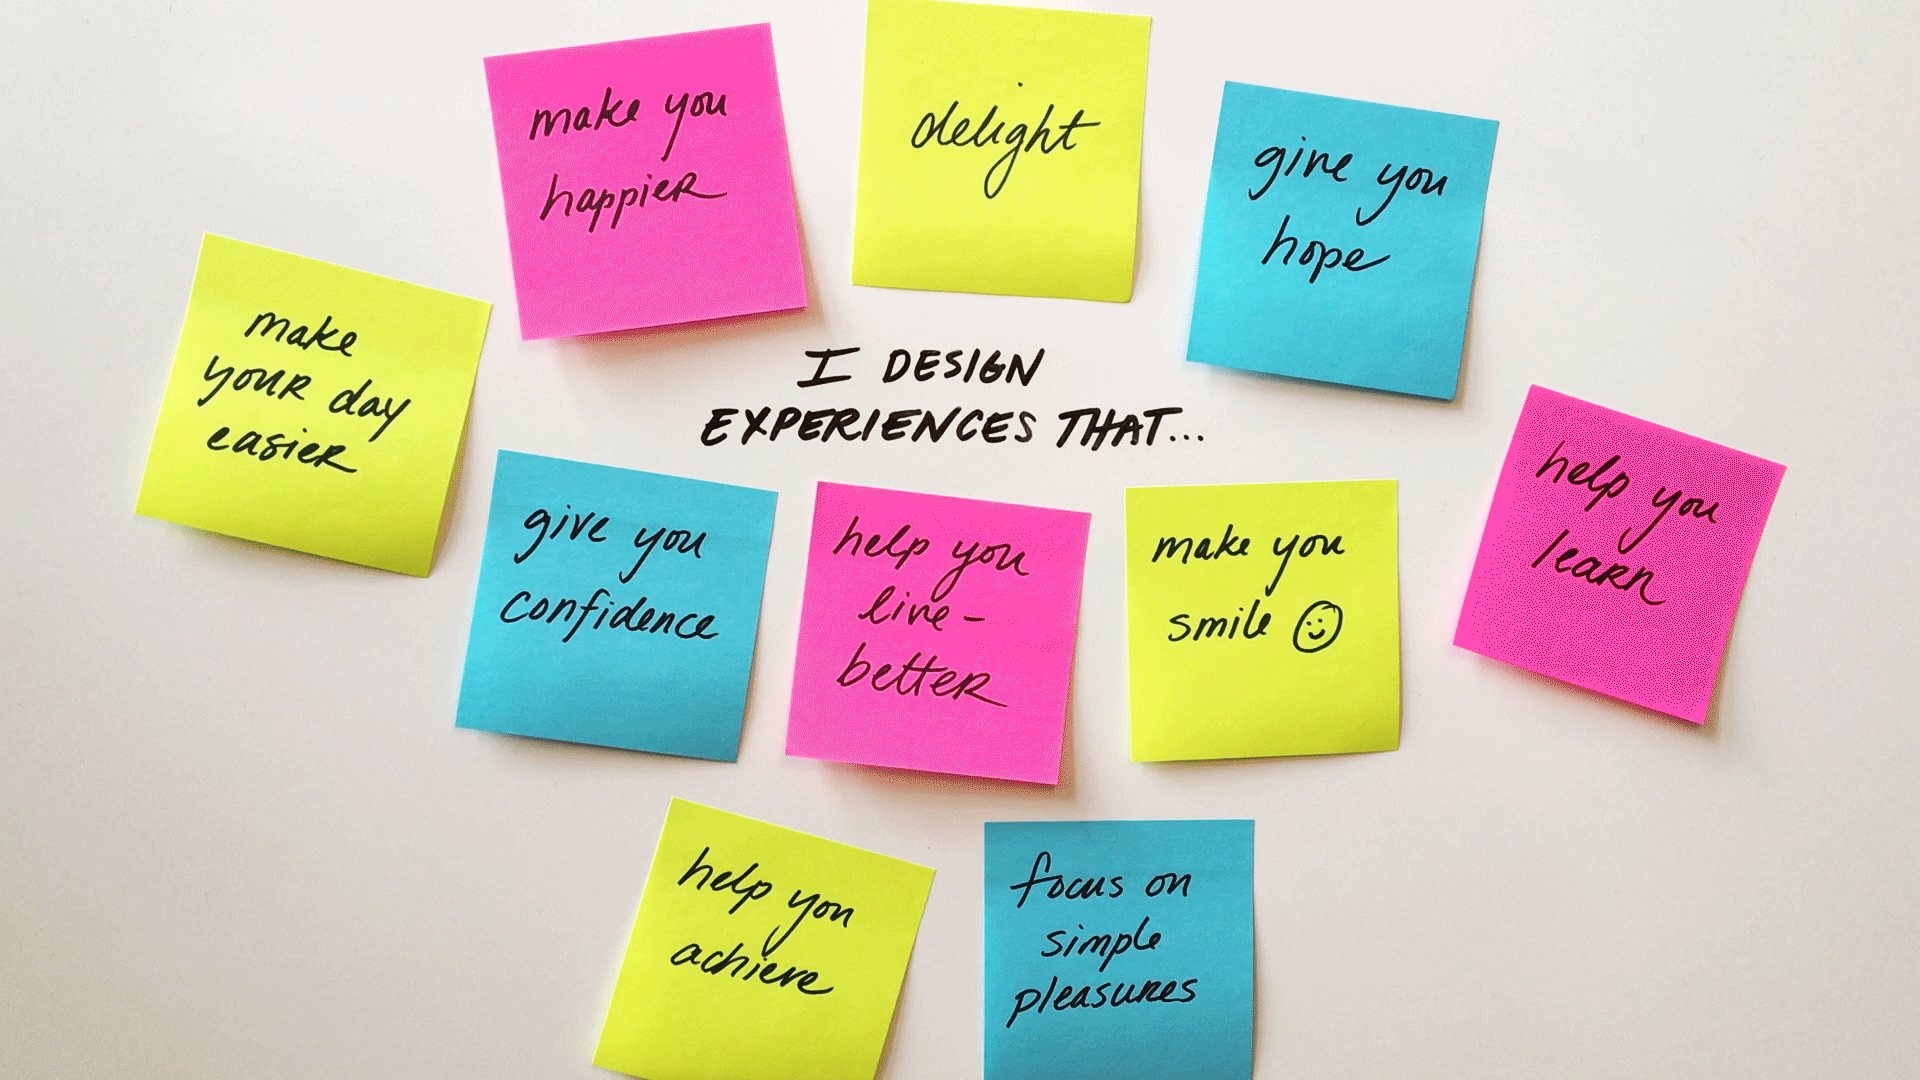 make you
happier
delight
give you
hope
make
your day
easier
I DESIGN
EXPERIENCES THAT...
help you
learn
give you
confidence
help you
live-
better
make you
smile
help you
achieve
focus on
simple
pleasures